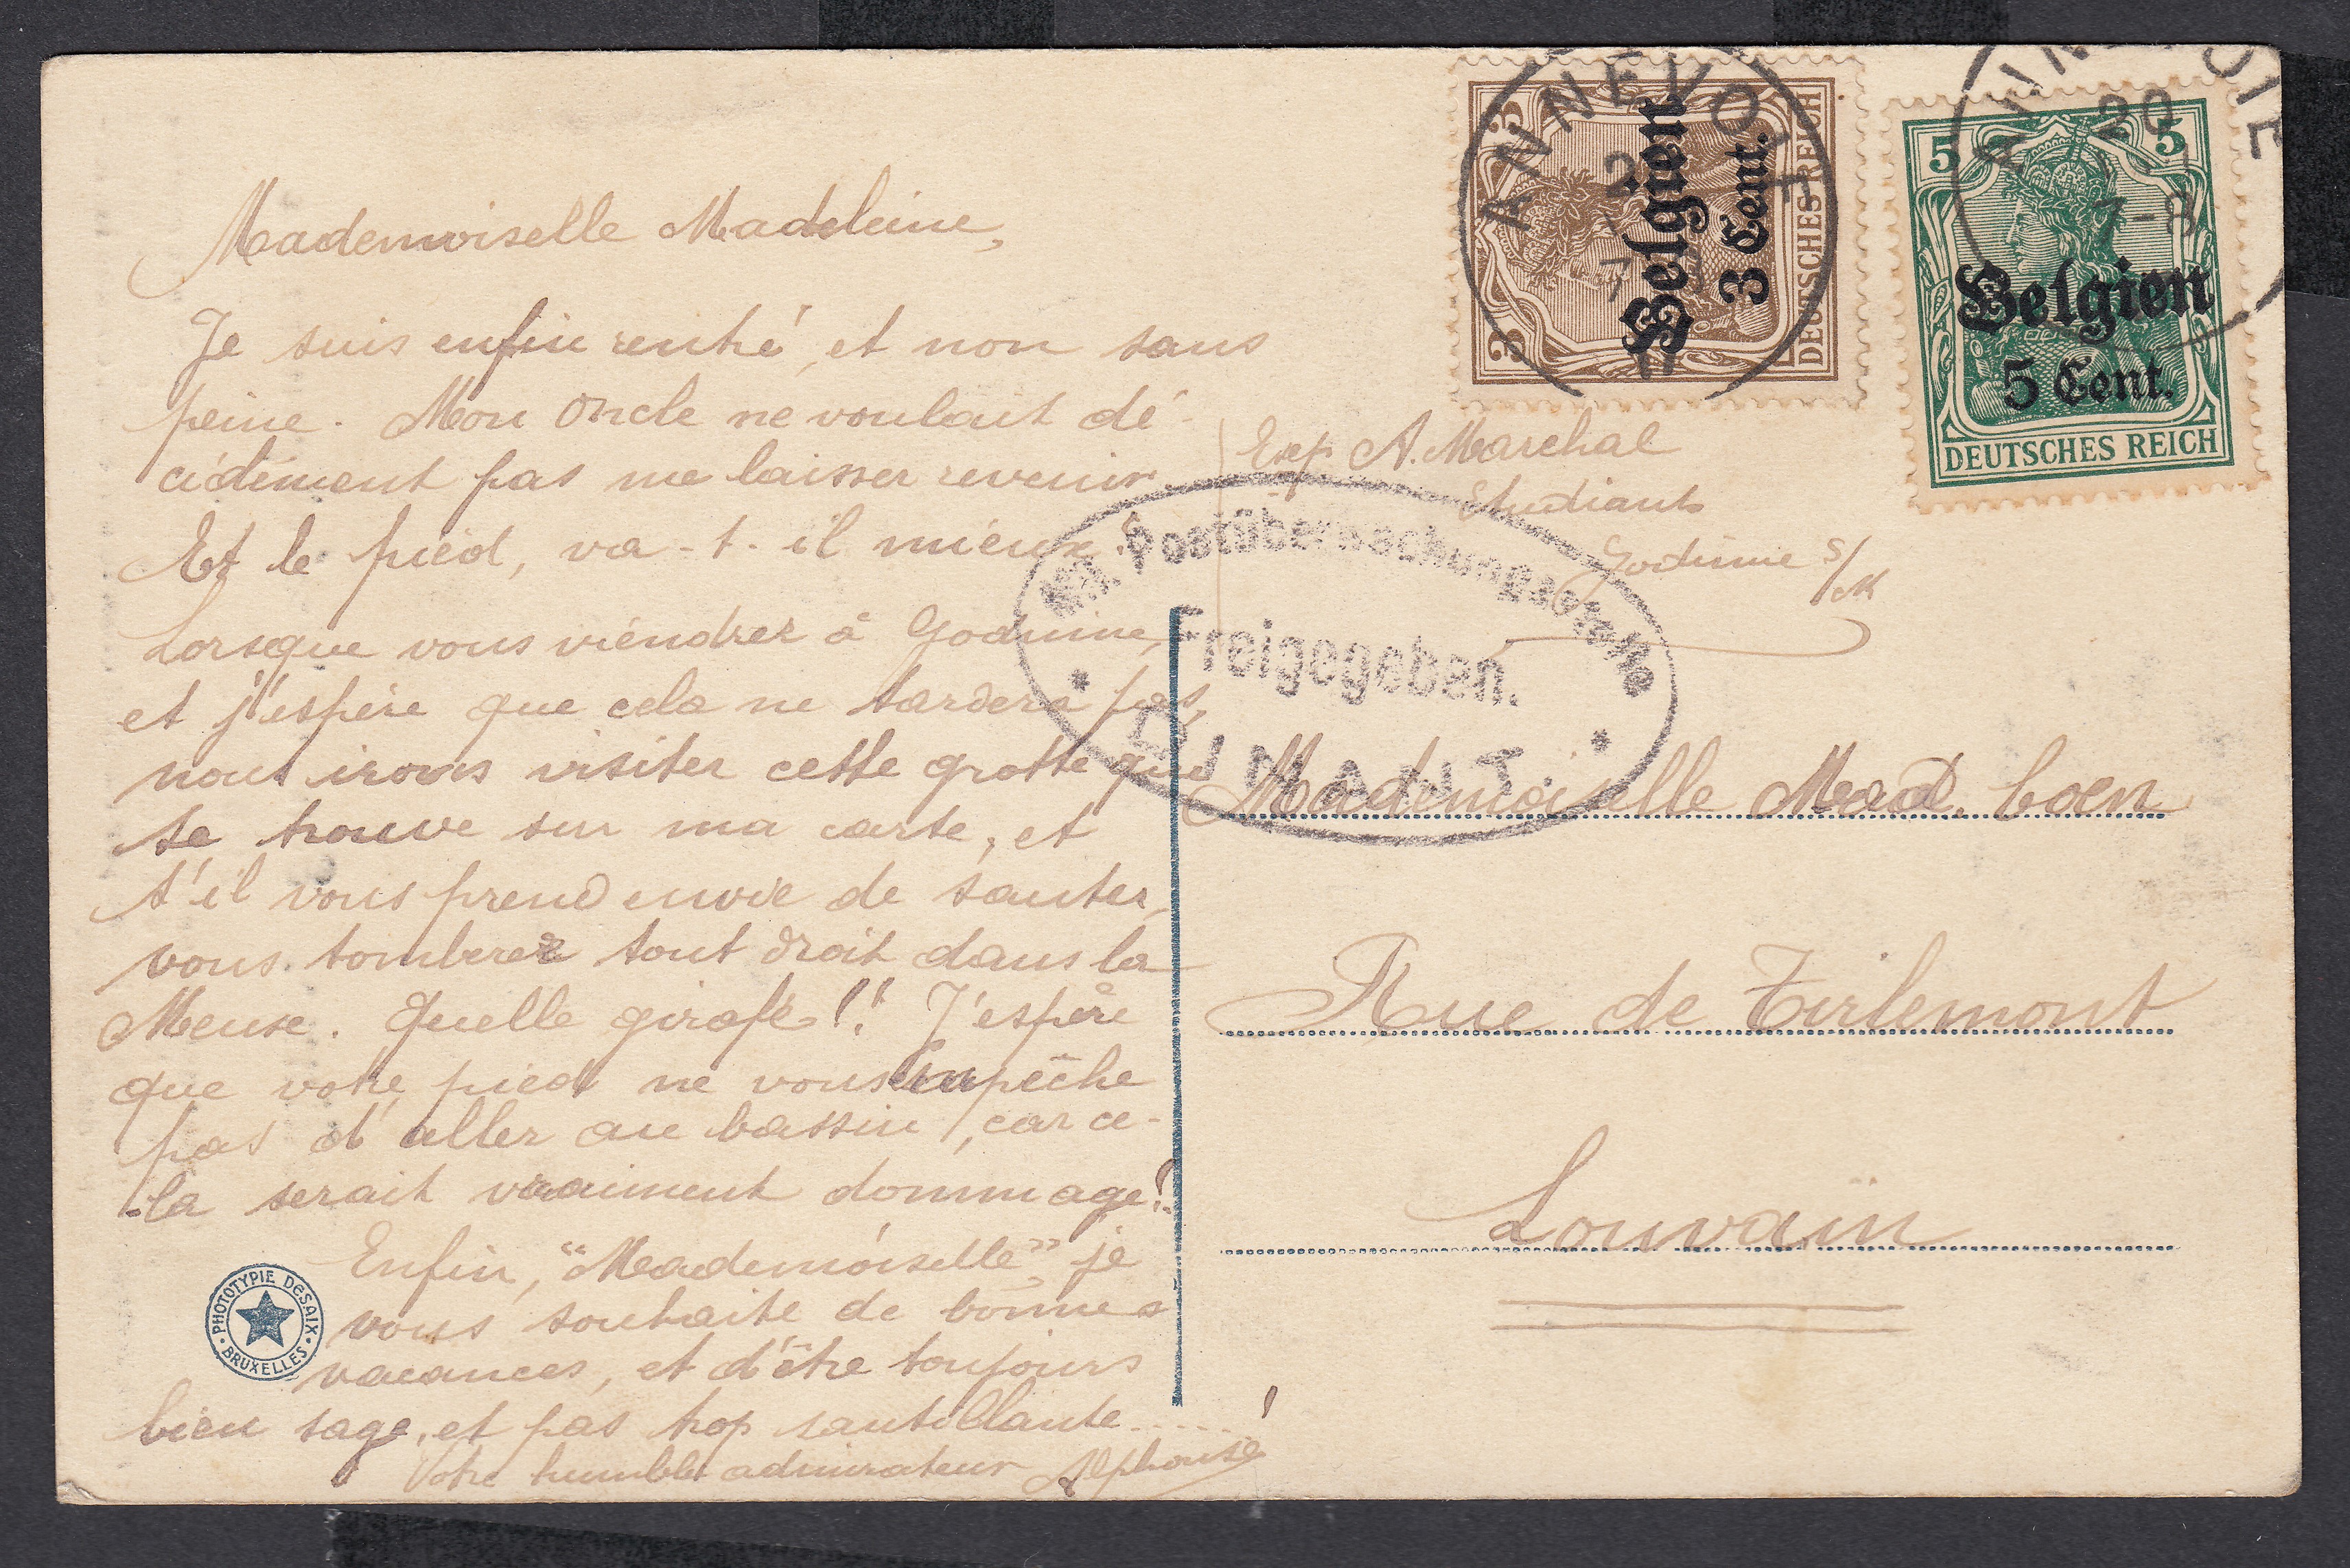 Mademoiselle Madeleine,
Je suis enfin rentré, et non sans
peine. Mon Oncle ne voulait dé-
cidément pas me laisser revenir.
Et le pied, va-t-il mieux?
Lorsque vous viendrez à Godinne,
et j'espère que cela ne tardera pas,
nous irons visiter cette grotte qui
se trouve sur ma carte, et
s'il vous prend envie de sauter,
vous tomberez tout droit dans la
Meuse. Quelle girafe!! J'espère
que votre pied ne vous empêche
pas d'aller au bassin, car ce-
la serait vraiment dommage!
Enfin, "Mademoiselle", je
vous souhaite de bonnes
vacances, et d'être toujours
bien sage, et pas trop sautillante......!
Votre humble admirateur Alphonse
PHOTOTYPIE DESAIX
BRUXELLES
ANNEVOIE
2
7
3 3
Belgien
3 Cent.
DEUTSCHES REICH
ANNEVOIE
20
7-8
5 5
Belgien
5 Cent.
DEUTSCHES REICH
Exp A. Marchal
Etudiant
Godinne s/M
Mil. Postüberwachungsstelle
Freigegeben.
* DINANT. *
Mademoiselle Mad. Coen
Rue de Tirlemont
Louvain